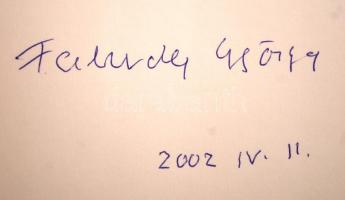 Faludy György
2002 IV. 11.